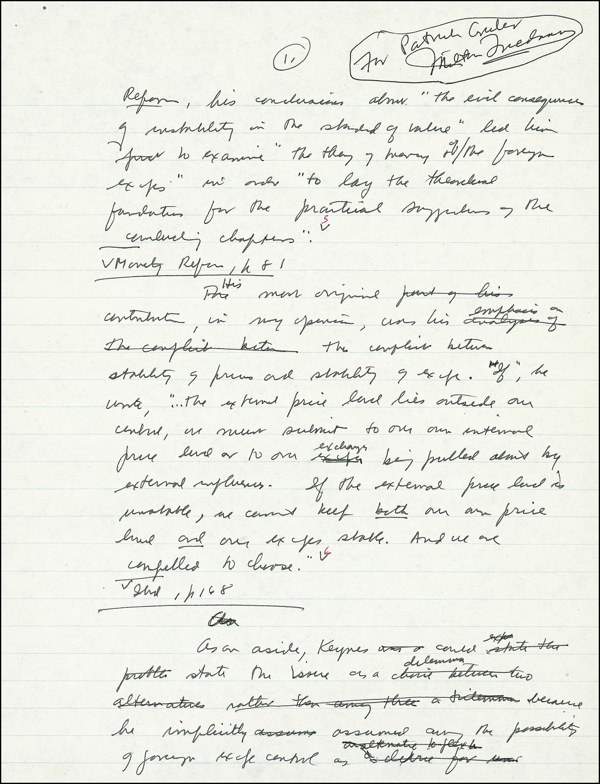 11
For Patrick Gruber
Milton Friedman
Reform, his conclusions about "the evil consequences
of instability in the standard of value" led him
first to examine "the theory of money & of the foreign
exchges" in order "to lay the theoretical
foundations for the practical suggestions of the
concluding chapters".5
√Monetary Reform, p 81
The His most original part of his
contribution, in my opinion, was his analysis of emphasis on
the conflict between the conflict between
stability of prices and stability of exchge. "If", he
wrote, "...the external price level lies outside our
control, we must submit to our own internal
price level or to our exchange being pulled about by
external influences. If the external price level is
unstable, we cannot keep both our own price
level and our exchges stable. And we are
compelled to choose."6
√Ibid, p 168
As an aside, Keynes was a could state the
problem state the issue as a choice between two dilemma
alternatives rather than among three a trilemma because
he implicitly assumes assumed away the possibility
of foreign exchge control as